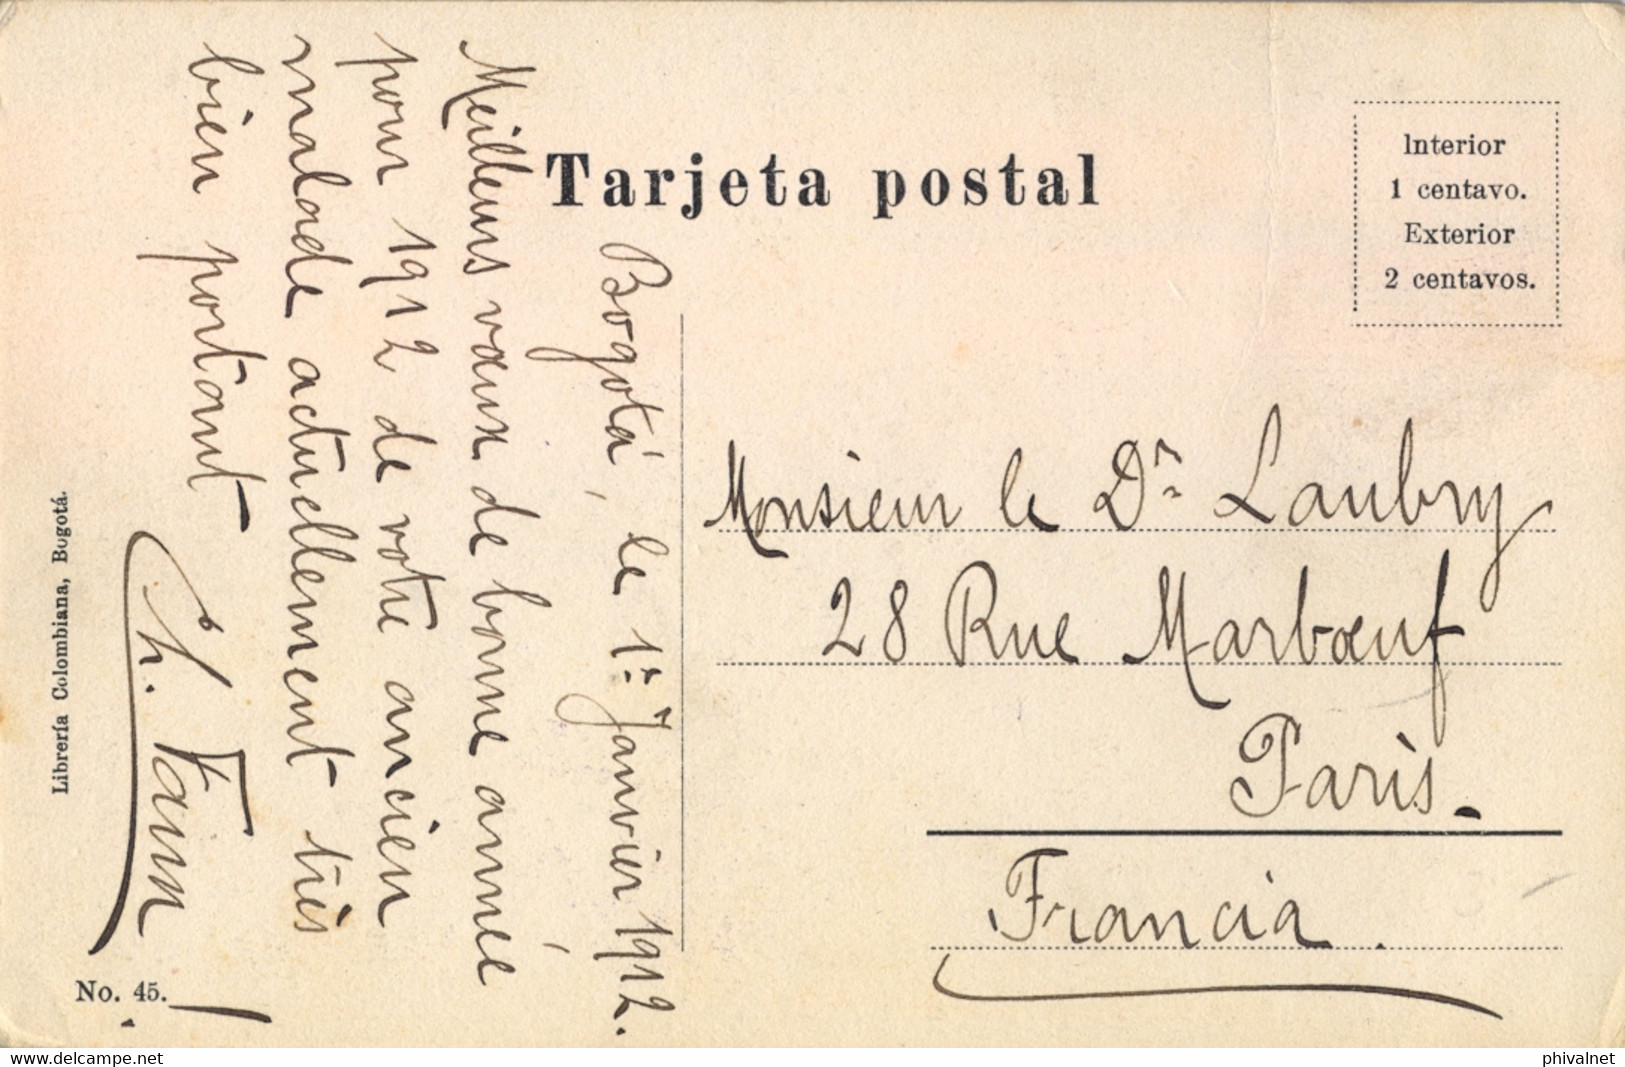 Tarjeta postal
Interior
1 centavo.
Exterior
2 centavos.
Bogotá, le 1er Janvier 1912.
Meilleurs vœux de bonne année
pour 1912 de votre ancien
malade actuellement très
bien portant
Ch. Fainn
Monsieur le Dr Laubry
28 Rue Marbœuf
Paris.
Francia.
Librería Colombiana, Bogotá.
No. 45.
delcampe.net
phivalnet